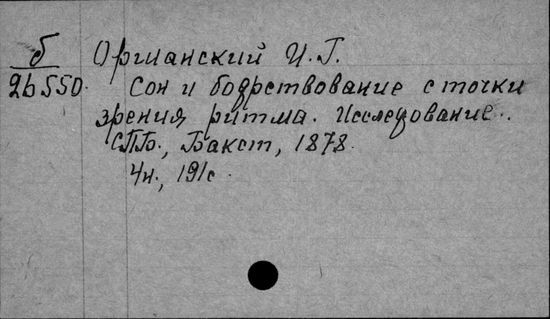 б
26550.
Оршанский И. Г.
Сон и бодрствование с точки
зрения ритма. Исследование.
СПБ., Бакст, 1878.
4н., 191с.